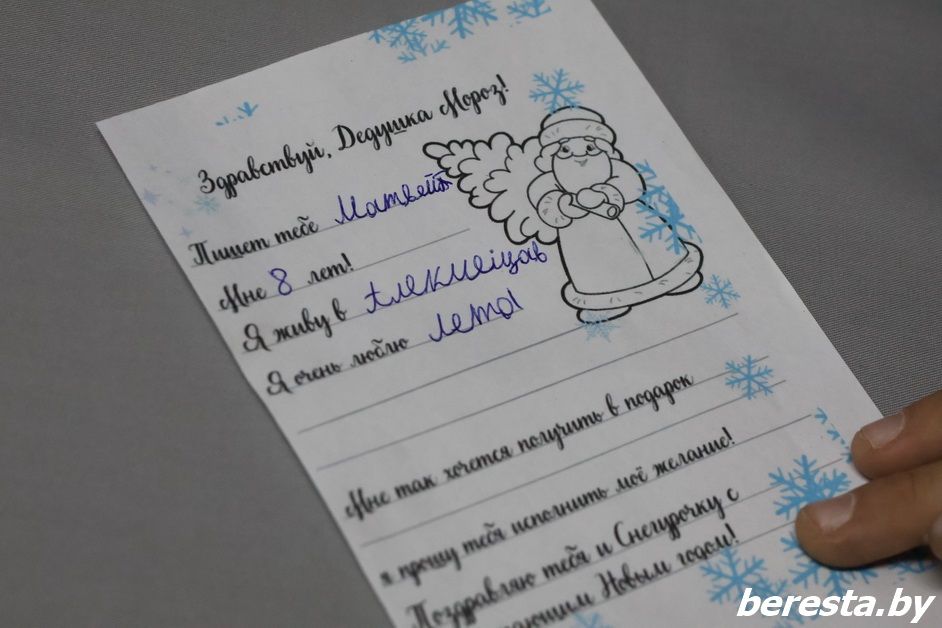 Здравствуй, Дедушка Мороз!
Пишет тебе Матвей
Мне 8 лет!
Я живу в
Я очень люблю лето
Мне так хочется получить в подарок
я прошу тебя исполнить моё желание!
Поздравляю тебя и Снегурочку с
Новым годом!
beresta.by